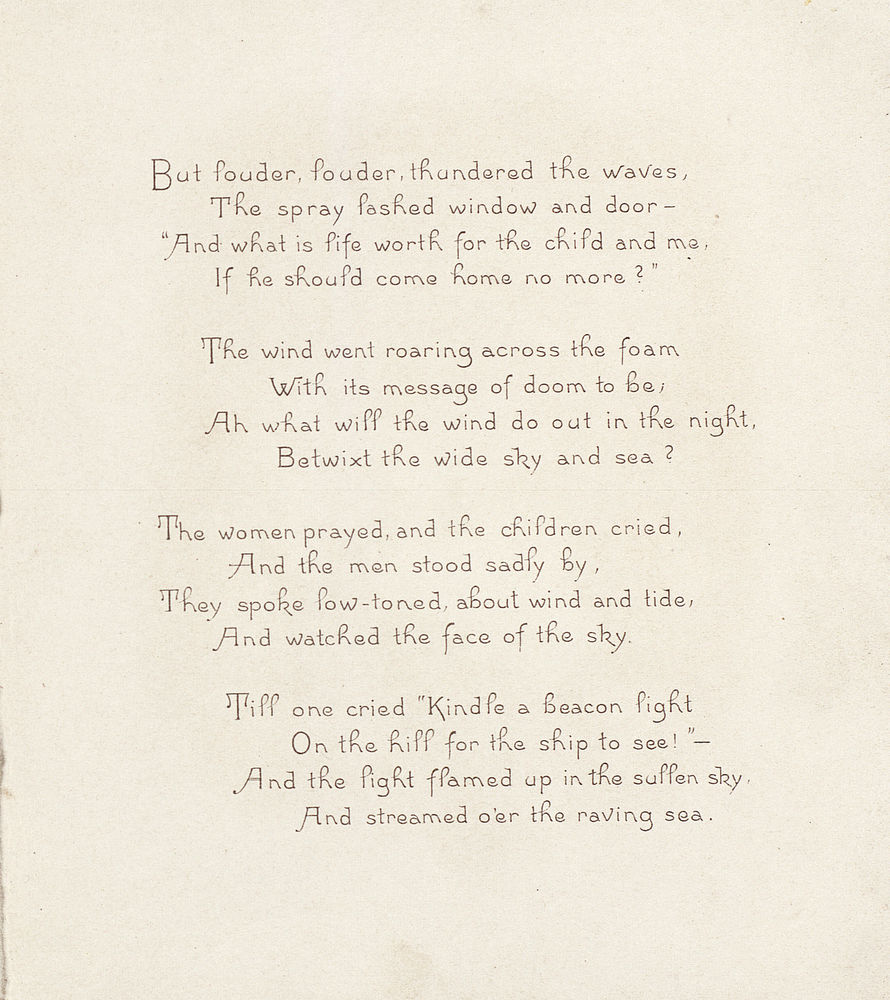 But louder, louder, thundered the waves,
The spray lashed window and door –
"And what is life worth for the child and me,
If he should come home no more?"
The wind went roaring across the foam
With its message of doom to be;
Ah what will the wind do out in the night,
Betwixt the wide sky and sea?
The women prayed, and the children cried,
And the men stood sadly by,
They spoke low-toned, about wind and tide,
And watched the face of the sky.
Till one cried "Kindle a beacon light
On the hill for the ship to see!" –
And the light flamed up in the sullen sky,
And streamed o'er the raving sea.